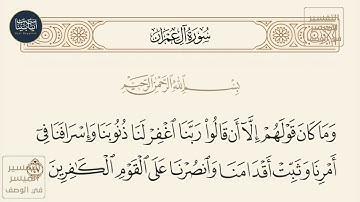 سُورَةُ آلِ عِمْرَانَ
بِسْمِ اللَّهِ الرَّحْمَٰنِ الرَّحِيمِ
وَمَا كَانَ قَوْلَهُمْ إِلَّا أَن قَالُوا۟ رَبَّنَا ٱغْفِرْ لَنَا ذُنُوبَنَا وَإِسْرَافَنَا فِىٓ
أَمْرِنَا وَثَبِّتْ أَقْدَامَنَا وَٱنصُرْنَا عَلَى ٱلْقَوْمِ ٱلْكَـٰفِرِينَ
التفسير
الميسر
في الوصف